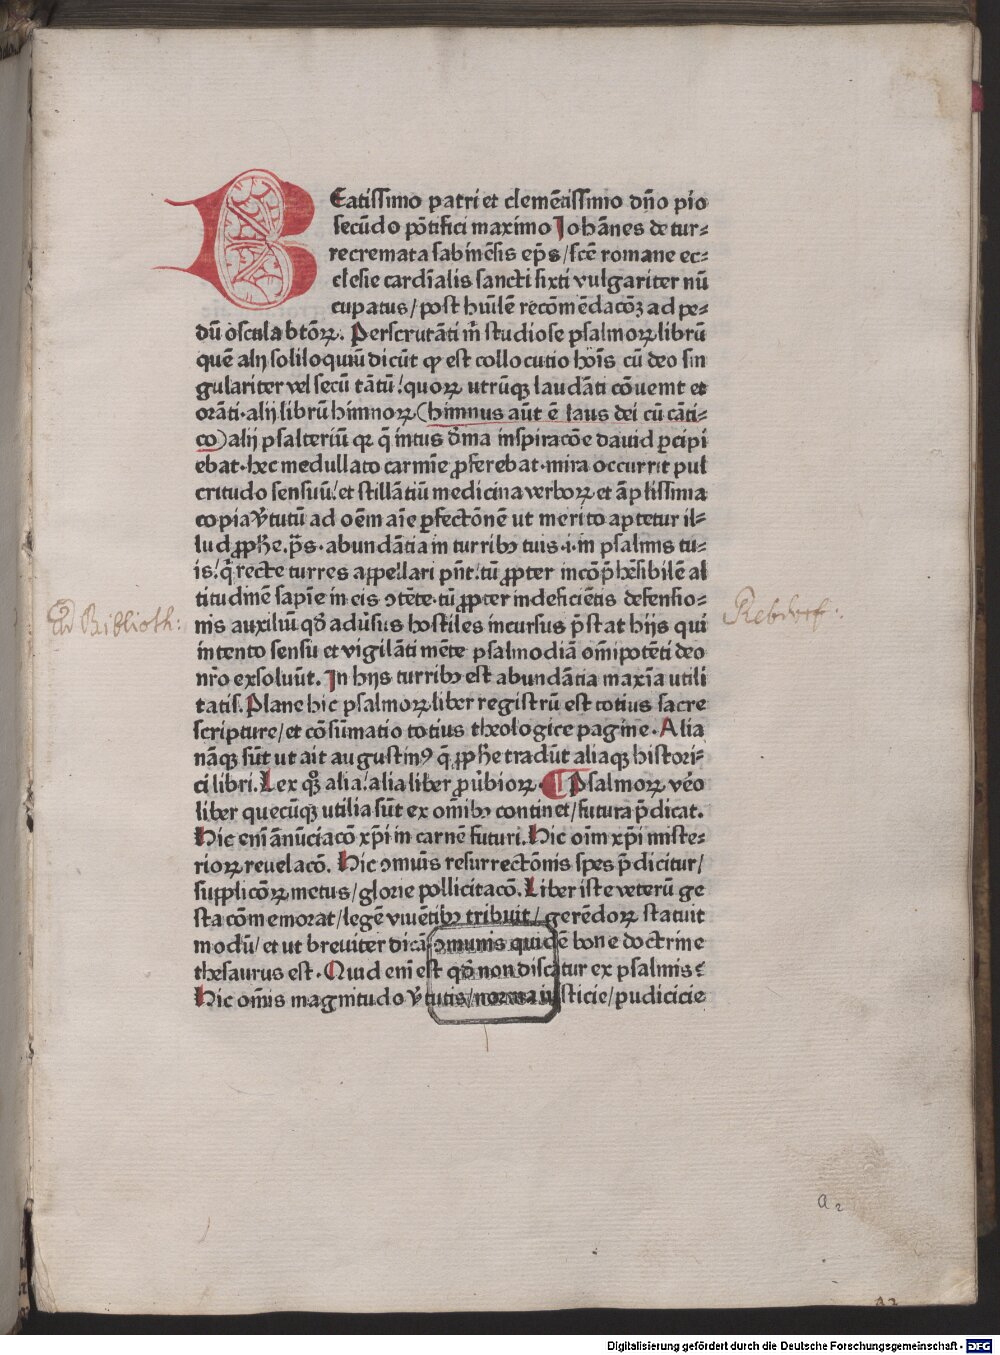 Beatissimo patri et clemētissimo dño pio
secūdo põtifici maximo Johānes de tur⸗
recremata sabinēsis ep̄s / sc̄e romane ec⸗
clesie cardīalis sancti sixti vulgariter nū
cupatus / post hūilē recōmēdacōꝫ ad pe⸗
dū oscula btōꝝ. Perscrutāti m̄ studiose psalmoꝝ librū
quē alij soliloquiū dicūt qꝫ est collocutio hoīs cū deo sin
gulariter vel secū tātū! quoꝝ utrūqꝫ laudāti cōuenit et
orāti · alij librū himnoꝝ (himnus aūt ē laus dei cū cāti⸗
co) alij psalteriū qꝛ q̄ intus diuīa inspiracōe dauid ꝑcipi
ebat · hec medullato carmīe ꝓferebat · mira occurrit pul
critudo sensuū! et stillātiū medicina verboꝝ et āplissima
copia v̓tutū ad oēm aīe ꝑfectōnē ut merito aptetur il⸗
lud ꝓphe. p̄s · abundātia in turribꝫ tuis · i · in psalmis tu⸗
is! q̄ recte turres appellari pñt! tū ꝓpter incōp̄hēsibilē al
titudinē sapīe in eis ɔtēte · tū ꝓpter indeficiētis defensio⸗
nis auxiliū qđ adūsus hostiles incursus p̄stat hijs qui
intento sensu et vigilāti mēte psalmodiā oīpotēti deo
nr̄o exsoluūt. In hijs turribꝫ est abundātia maxīa utili
tatis. Plane hic psalmoꝝ liber registrū est totius sacre
scripture / et cōsūmatio totius theologice pagine · Alia
nāqꝫ sūt ut ait augustinꝰ q̄ ꝓphe tradūt aliaqꝫ histori⸗
ci libri. Lex qꝫ alia! alia liber ꝓūbioꝝ · ¶ Psalmoꝝ v̓o
liber quecūqꝫ utilia sūt ex oīibꝫ continet / futura p̄dicat.
Hic enī ānūciacō xp̄i in carnē futuri. Hic oīm xp̄i miste⸗
rioꝝ reuelacō. Hic ɔmūis resurrectōnis spes p̄dicitur /
supplicōꝝ metus / glorie pollicitacō. Liber iste veterū ge
sta cōmemorat / legē viuētibꝫ tribuit / gerēdoꝝ statuit
modū / et ut breuiter dicā ɔmunis quidē bone doctrine
thesaurus est · Quid enī est qđ non discatur ex psalmis?
Hic oīis magnitudo v̓tutis / norma iusticie / pudicicie
Ad Biblioth:
Rebdorf:
a 2
Digitalisierung gefördert durch die Deutsche Forschungsgemeinschaft · DFG